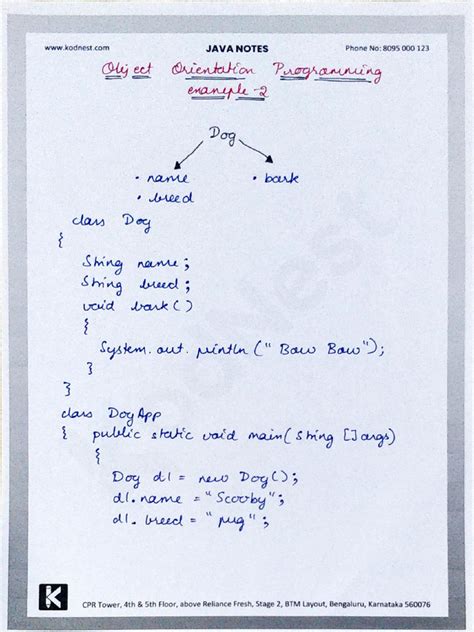 www.kodnest.com JAVA NOTES Phone No: 8095 000 123
Object Orientation Programming
example-2
Dog
• name • bark
• breed
class Dog
{
String name;
String breed;
void bark()
{
System.out.println("Bow Bow");
}
}
class DogApp
{ public static void main(String []args)
{
Dog d1 = new Dog();
d1.name = "Scooby";
d1.breed = "pug";
K CPR Tower, 4th & 5th Floor, above Reliance Fresh, Stage 2, BTM Layout, Bengaluru, Karnataka 560076